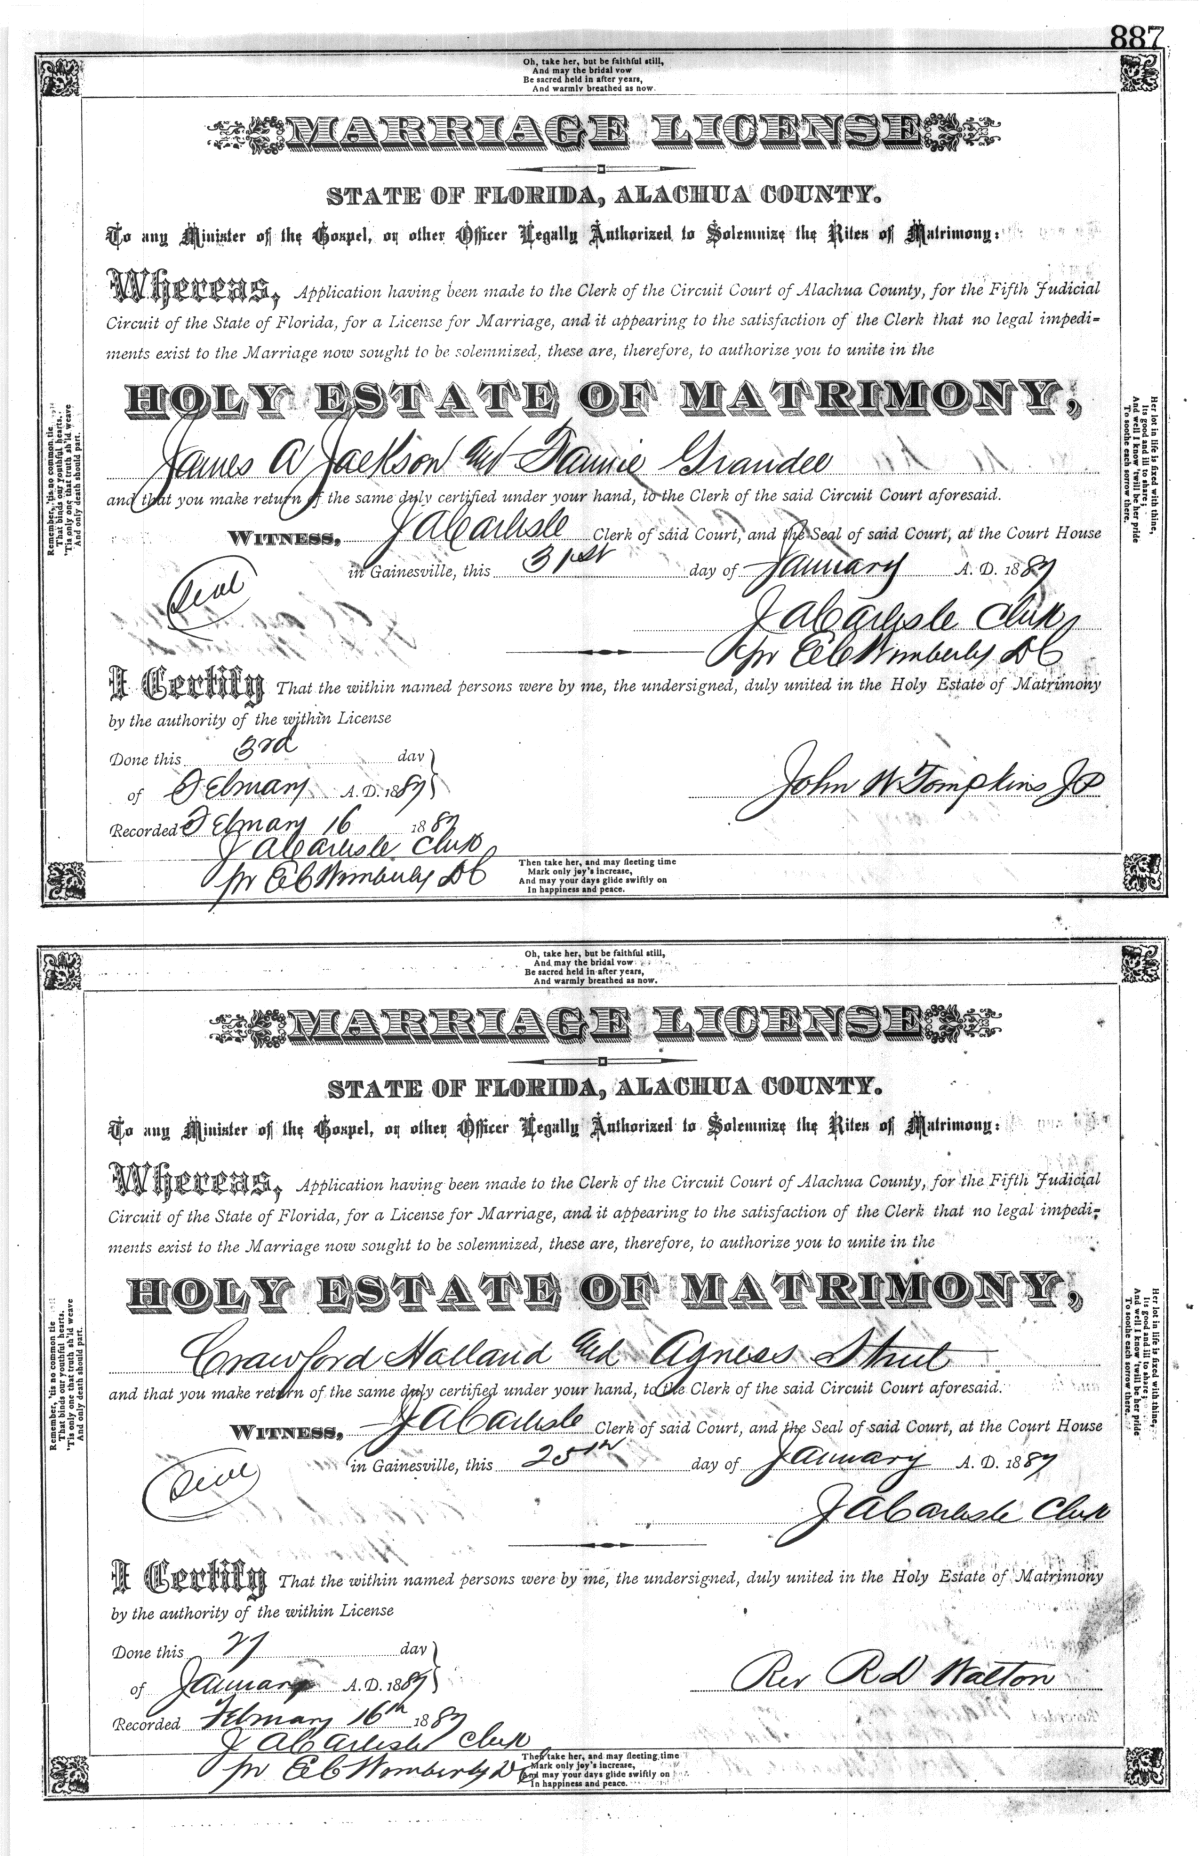 887
Oh, take her, but be faithful still,
And may the bridal vow
Be sacred held in after years,
And warmly breathed as now.
MARRIAGE LICENSE
STATE OF FLORIDA, ALACHUA COUNTY.
To any Minister of the Gospel, or other Officer Legally Authorized to Solemnize the Rites of Matrimony:
Whereas, Application having been made to the Clerk of the Circuit Court of Alachua County, for the Fifth Judicial
Circuit of the State of Florida, for a License for Marriage, and it appearing to the satisfaction of the Clerk that no legal impedi-
ments exist to the Marriage now sought to be solemnized, these are, therefore, to authorize you to unite in the
HOLY ESTATE OF MATRIMONY,
James A Jackson and Fannie Grandee
and that you make return of the same duly certified under your hand, to the Clerk of the said Circuit Court aforesaid.
WITNESS, J A Carlisle Clerk of said Court, and the Seal of said Court, at the Court House
in Gainesville, this 31st day of January A. D. 1887
Seal
J A Carlisle Clerk
pr E C Wimberly D C
I Certify That the within named persons were by me, the undersigned, duly united in the Holy Estate of Matrimony
by the authority of the within License
Done this 3rd day
of February A. D. 1887
John W Tompkins J P
Recorded February 16 1887
J A Carlisle Clerk
pr E C Wimberly D C
Remember, 'tis no common tie
That binds our youthful hearts,
'Tis only one that truth sh'ld weave
And only death should part.
Her lot in life is fixed with thine,
Its good and ill to share;
And well I know 'twill be her pride
To soothe each sorrow there.
Then take her, and may fleeting time
Mark only joy's increase,
And may your days glide swiftly on
In happiness and peace.
Oh, take her, but be faithful still,
And may the bridal vow
Be sacred held in after years,
And warmly breathed as now.
MARRIAGE LICENSE
STATE OF FLORIDA, ALACHUA COUNTY.
To any Minister of the Gospel, or other Officer Legally Authorized to Solemnize the Rites of Matrimony:
Whereas, Application having been made to the Clerk of the Circuit Court of Alachua County, for the Fifth Judicial
Circuit of the State of Florida, for a License for Marriage, and it appearing to the satisfaction of the Clerk that no legal impedi-
ments exist to the Marriage now sought to be solemnized, these are, therefore, to authorize you to unite in the
HOLY ESTATE OF MATRIMONY,
Crawford Holland and Agness
and that you make return of the same duly certified under your hand, to the Clerk of the said Circuit Court aforesaid.
WITNESS, J A Carlisle Clerk of said Court, and the Seal of said Court, at the Court House
in Gainesville, this 25th day of January A. D. 1887
Seal
J A Carlisle Clerk
I Certify That the within named persons were by me, the undersigned, duly united in the Holy Estate of Matrimony
by the authority of the within License
Done this 27 day
of January A. D. 1887
Rev R D Walton
Recorded February 16th 1887
J A Carlisle Clerk
pr E C Wimberly D C
Remember, 'tis no common tie
That binds our youthful hearts.
'Tis only one that truth sh'ld weave
And only death should part.
Her lot in life is fixed with thine,
Its good and ill to share;
And well I know 'twill be her pride
To soothe each sorrow there.
Then take her, and may fleeting time
Mark only joy's increase,
And may your days glide swiftly on
In happiness and peace.